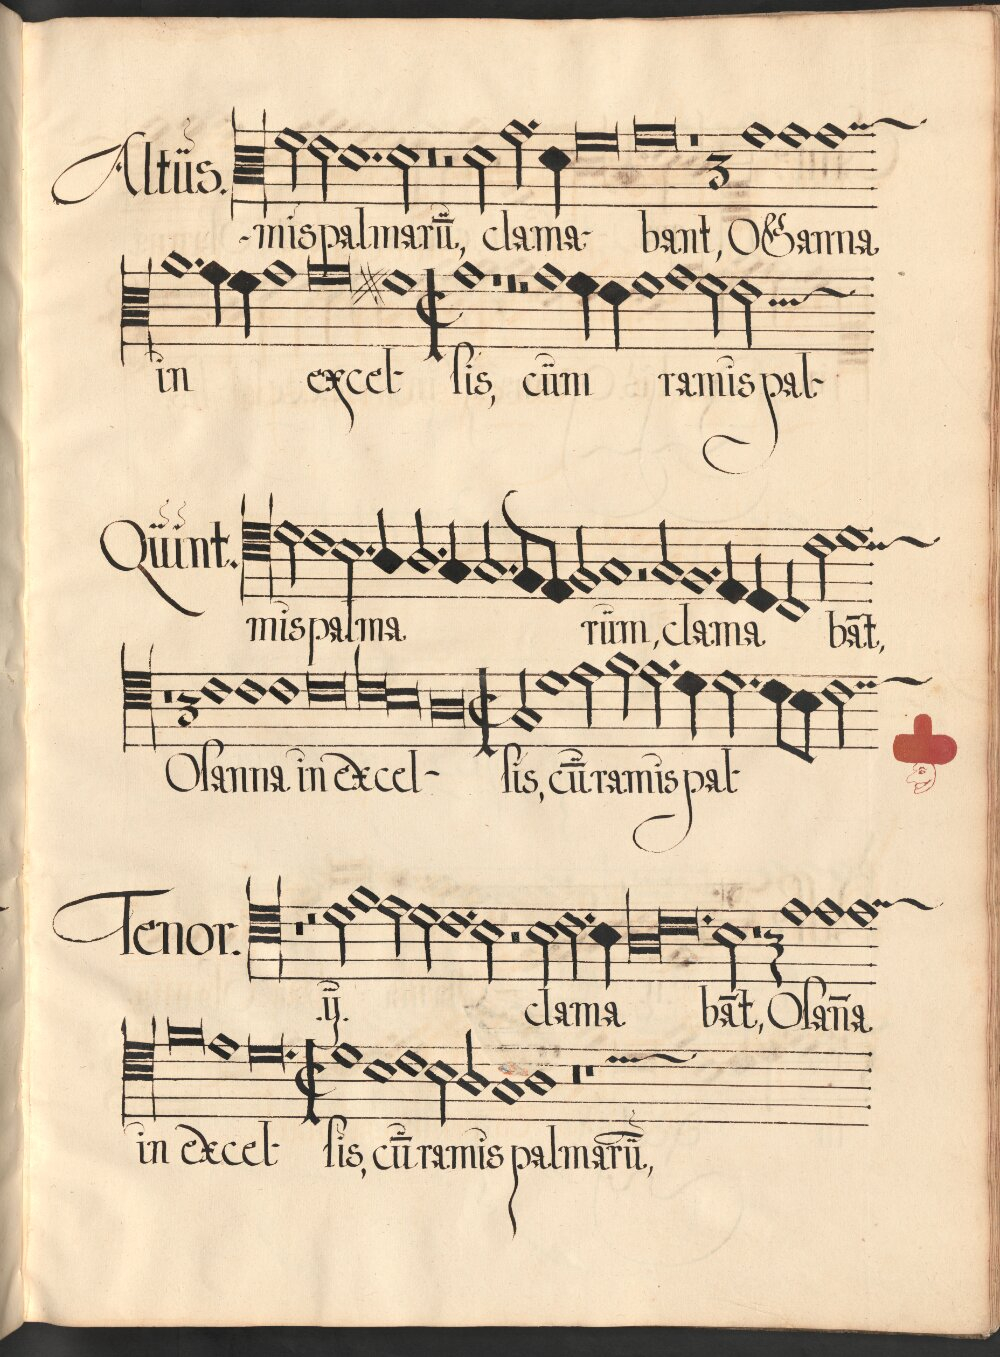 Altüs.
-mis palmarū, clama- bant, Osanna
in excel- sis, cüm ramis pal-
Qüint.
mis palma rüm, clama bāt,
3
Osanna in excel- sis, cū ramis pal-
Tenor.
.ij. clama bāt, Osaña
in excel- sis, cū ramis palmarū,